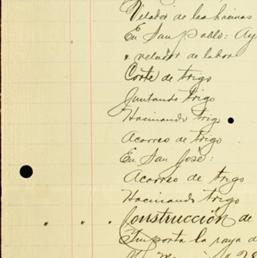 Velador de las haimas
En San Pablo: Ay
" velador de labor
Corte de trigo
Juntando trigo
Hacinando trigo
Acarreo de trigo
En San José:
Acarreo de trigo
Hacinando trigo
Construcción de
Importa la raya d